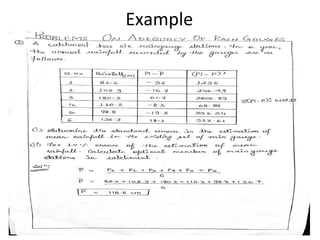 Example
PROBLEMS ON ADEQUACY OF RAIN GAUGES
A catchment has six raingauge stations. In a year,
the annual rainfall recorded by the gauges are as
follows.
S.No Rainfall (cm) Pi-P̄ (Pi-P̄)²
1 82.6 -36 1296
2 102.9 -15.7 246.49
3 180.3
4 110.3 -8.3 68.89
5 98.8 -19.8 392.04
6 136.7 18.1 327.61
(i) determine the standard error in the estimation of
mean rainfall in the existing set of rain gauge.
(ii) For 10% error of the estimation of mean
rainfall. Calculate optimal number of raingauge
stations in catchment.
P̄ = P₁ + P₂ + P₃ + P₄ + P₅ + P₆
6
P̄ = 82.6 + 102.9 + 180.3 + 110.3 + 98.8 + 136.7
6
P̄ = 118.6 cm